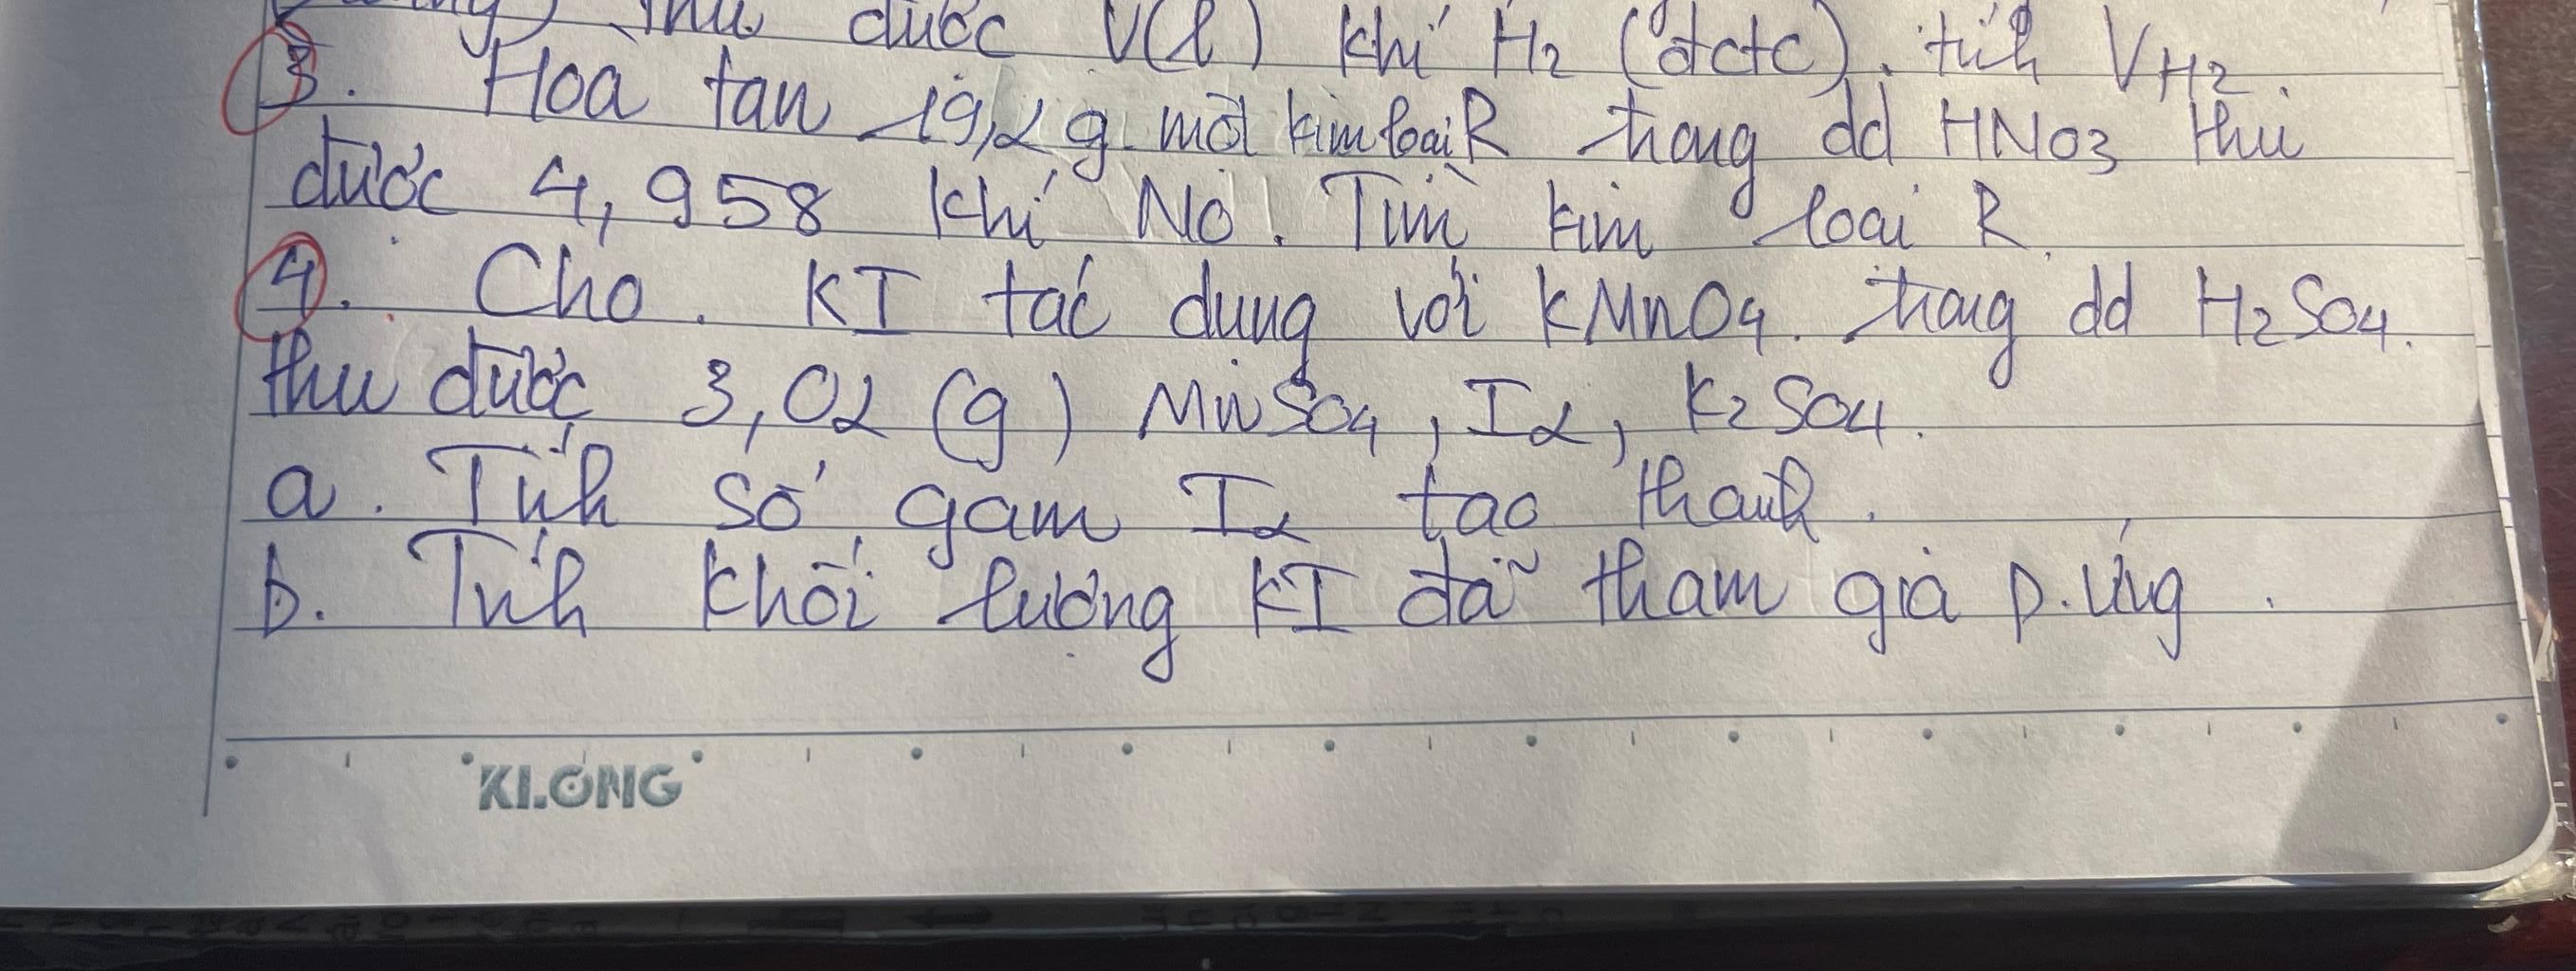 thu được V(l) khí H2 (đctc). tính VH2.
3. Hòa tan 19,2 g một kim loại R trong dd HNO3 thu
được 4,958 khí NO. Tìm kim loại R.
4. Cho. KI tác dụng với KMnO4. trong dd H2SO4.
thu được 3,02 (g) MnSO4, I2, K2SO4.
a. Tính số gam I2 tạo thành.
b. Tính khối lượng KI đã tham gia p.ứng.
KLONG